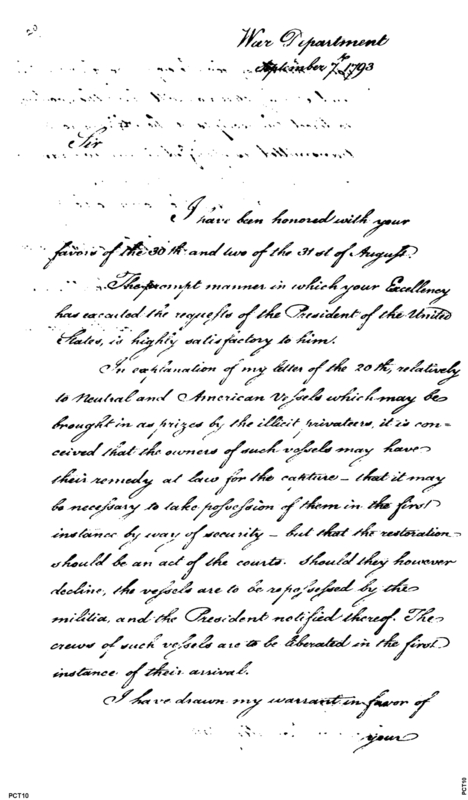 20
War Department
September 7th 1793
Sir
I have been honored with your
favors of the 30th and two of the 31st of August.
The prompt manner in which your Excellency
has executed the requests of the President of the United
States, is highly satisfactory to him.
In explanation of my letter of the 20th, relatively
to Neutral and American Vessels which may be
brought in as prizes by the illicit privateers, it is con=
ceived that the owners of such vessels may have
their remedy at law for the capture – that it may
be necessary to take possession of them in the first
instance by way of security – but that the restoration
should be an act of the courts. Should they however
decline, the vessels are to be repossessed by the
militia, and the President notified thereof. The
crews of such vessels are to be liberated in the first
instance of their arrival.
I have drawn my warrant in favor of
your
PCT10
PCT10